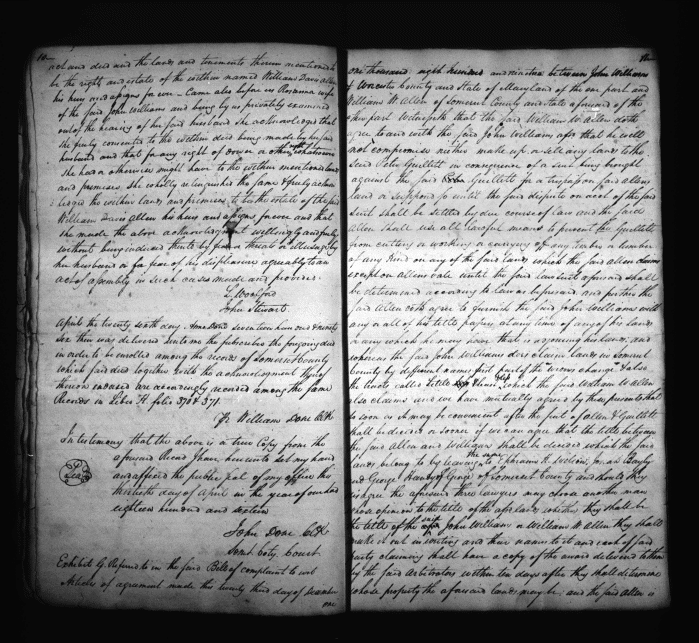 act and deed and the lands and tenements therein mentioned to
be the right and estate of the within named William Davis Allen
his heirs and assigns for ever - Came also before us Rosanna wife
of the said John Williams and being by us privately examined
out of the hearing of her said husband she acknowledged that
she freely consented to the within deed being made by her said
husband and that for any right of dower or other right whatsoever
She had or otherwise might have to the within mentioned lands
and premises She wholly relinquished the same & freely acknow
ledged the within lands and premises to be the estate of the said
William Davis Allen his heirs and assigns for ever and that
she made the above acknowledgment willingly and freely
without being induced thereto by fear or threats or ill usage by
her husband or for fear of his displeasure agreeably to an
act of assembly in such cases made and provided.
John Stewart
April the twenty sixth day. Anno Domini seventeen hundred & ninety
Six then was delivered unto me the subscriber the foregoing deed
in order to be enrolled among the records of Somerset County
which said deed together with the acknowledgment thereof &
thereon endorsed are accordingly recorded among the same
Records in Liber H. folio 370 & 371.
Pr William Done Clk
In testimony that the above is a true Copy from the
aforesaid Record I have hereunto set my hand
and affixed the public seal of my office this
thirtieth day of April in the year of our lord
eighteen hundred and sixteen
Seal
John Done Clk
Somst Coty Court
Exhibit G. Referred to in the said Bill of complaint to wit
Articles of agreement made this twenty third day of December
one
one thousand eight hundred and nineteen between John Williams
of Worcester County and State of Maryland of the one part and
William W Allen of Somerset County and state aforesaid of the
other part Witnesseth that the said William W Allen doth
agree to and with the said John Williams that he will
not compromise neither make up or let any lands to the
said Peter Gullett in consequence of a suit being brought
against the said Gullett for a trespass on said allens
land or supposed so until the said dispute on each of the said
suit shall be settled by due course of law and the said
Allen shall use all lawful means to prevent the Gullett
from cutting or working or carrying off any timber or lumber
of any kind on any of the said lands which the said allen claims
except on allens vale until the said lawsuit aforesaid shall
be determined according to law as aforesaid and further the
said Allen doth agree to furnish the said John Williams with
any or all of his title papers at any time of any of his lands
or any which he may have that is respecting his lands, and
whereas the said John Williams does claim lands in Somerset
County by different names first part of the vicious change & also
the tract called Little which the said William W Allen
also claims and we have mutually agreed by these presents that
so soon as it may be convenient after the suit of Allen & Gullett
shall be decided or sooner if we can agree that the title between
the said Allen and Williams shall be decided which the said
lands belong to by leaving the same to Ephraim K. Wilson,
and George Handy of George of Somerset County and should they
disagree the aforesaid three lawyers may chose another man
whose opinion to the title of the aforesaid lands whether they shall be
the title of the said John William or William W Allen they shall
make it out in writing and their names to it and each of said
party claiming shall have a copy of the award delivered to them
by the said Arbitrators within ten days after they shall determine
whose property the aforesaid lands may be; and the said Allen is